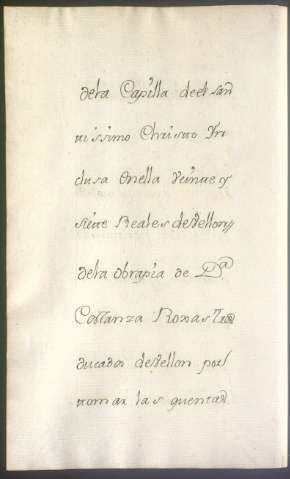 dela Capilla deel san
tissimo Christo Yn
clusa enella veinte y
siete Reales devellon
dela obrapia de D.ª
Costanza Roxas
ducados devellon por
tomar las quentas